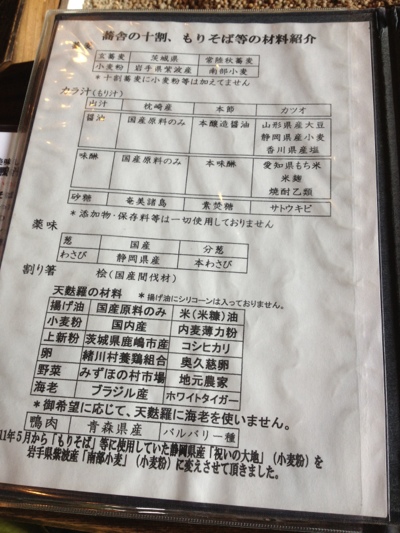 蕎舎の十割、もりそば等の材料紹介
玄蕎麦 茨城県 常陸秋蕎麦
小麦粉 岩手県紫波産 南部小麦
＊十割蕎麦に小麦粉等は加えてません
カラ汁(もり汁)
枕崎産 本節 カツオ
醤油 国産原料のみ 本醸造醤油 山形県産大豆
静岡県産小麦
香川県産塩
味醂 国産原料のみ 本味醂 愛知県もち米
米麹
焼酎乙類
砂糖 奄美諸島 素焚糖 サトウキビ
＊添加物・保存料等は一切使用しておりません
薬味
葱 国産 分葱
わさび 静岡県産 本わさび
割り箸 桧(国産間伐材)
天麩羅の材料 ＊揚げ油にシリコーンは入っておりません。
揚げ油 国産原料のみ 米(米糠)油
小麦粉 国内産 内麦薄力粉
上新粉 茨城県鹿嶋市産 コシヒカリ
卵 緒川村養鶏組合 奥久慈卵
野菜 みずほの村市場 地元農家
海老 ブラジル産 ホワイトタイガー
＊御希望に応じて、天麩羅に海老を使いません。
鴨肉 青森県産 バルバリー種
11年5月から「もりそば」等に使用していた静岡県産「祝いの大地」（小麦粉）を
岩手県紫波産「南部小麦」（小麦粉）に変えさせて頂きました。